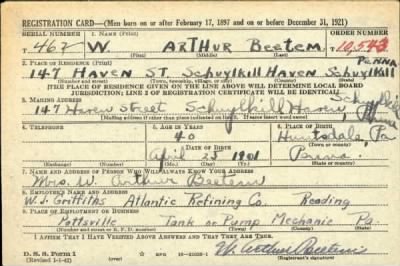 REGISTRATION CARD—(Men born on or after February 17, 1897 and on or before December 31, 1921)
SERIAL NUMBER 1. NAME (Print) ORDER NUMBER
T 467 W. ARTHUR BEETEM T 10,543
(First) (Middle) (Last)
2. PLACE OF RESIDENCE (Print) PENNA
147 HAVEN ST. SCHUYLKILL HAVEN SCHUYLKILL
(Number and street) (Town, township, village, or city) (County) (State)
[THE PLACE OF RESIDENCE GIVEN ON THE LINE ABOVE WILL DETERMINE LOCAL BOARD
JURISDICTION; LINE 2 OF REGISTRATION CERTIFICATE WILL BE IDENTICAL]
3. MAILING ADDRESS
147 Haven Street Schuylkill Haven, Schuylkill
[Mailing address if other than place indicated on line 2. If same insert word same]
4. TELEPHONE 5. AGE IN YEARS 6. PLACE OF BIRTH
40 Huntsdale, Pa
DATE OF BIRTH (Town or county)
April 25 1901 Penna.
(Exchange) (Number) (Mo.) (Day) (Yr.) (State or country)
7. NAME AND ADDRESS OF PERSON WHO WILL ALWAYS KNOW YOUR ADDRESS
Mrs. W. Arthur Beetem
8. EMPLOYER'S NAME AND ADDRESS
W. J. Griffiths Atlantic Refining Co. Reading
9. PLACE OF EMPLOYMENT OR BUSINESS
Pottsville Tank or Pump Mechanic Pa.
(Number and street or R. F. D. number) (Town) (County) (State)
I AFFIRM THAT I HAVE VERIFIED ABOVE ANSWERS AND THAT THEY ARE TRUE.
D. S. S. Form 1 W. Arthur Beetem
(Revised 1-1-42) (over) (Registrant's signature)